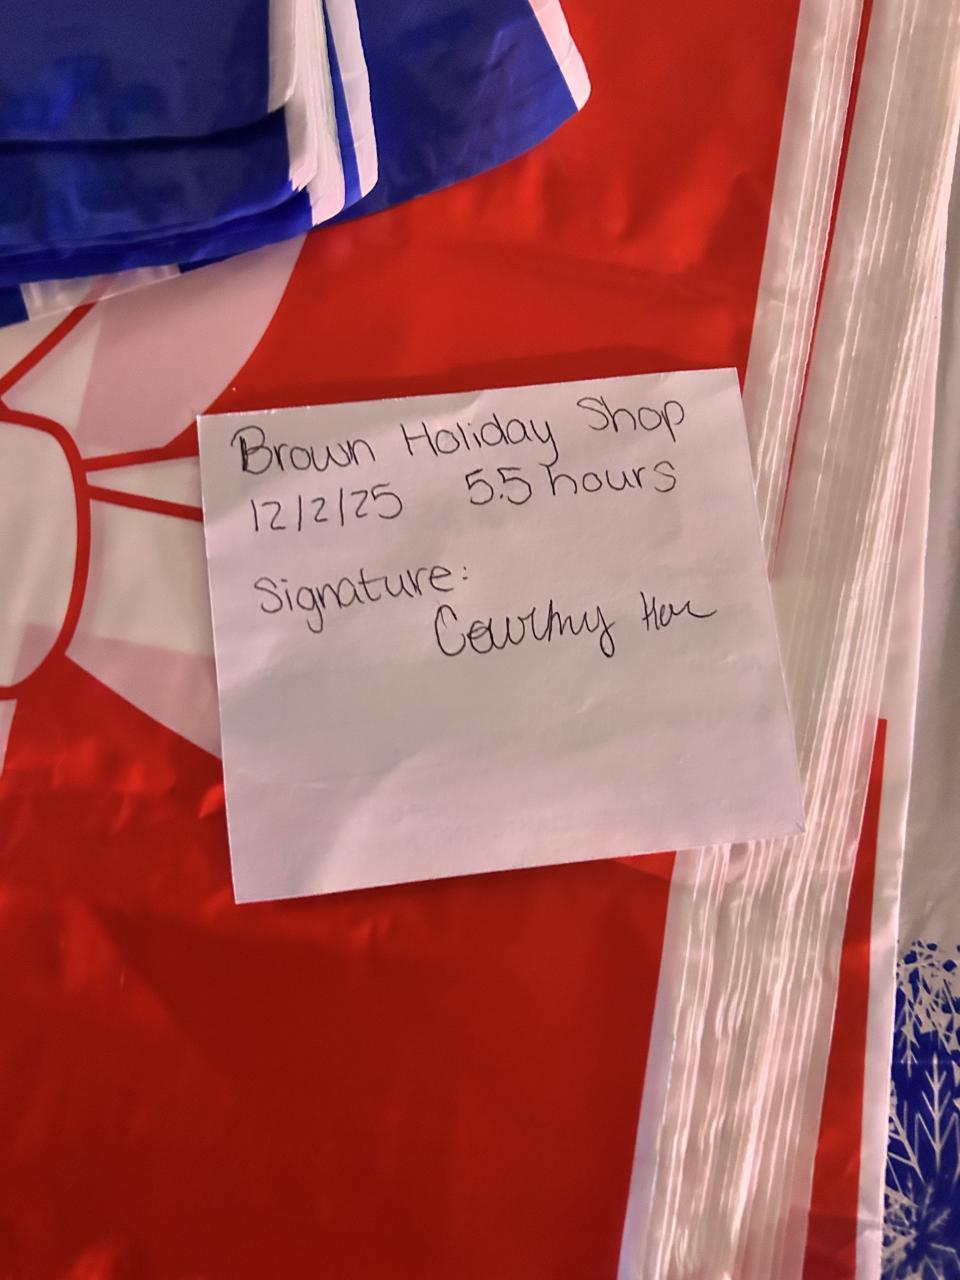 Brown Holiday Shop
12/2/25 5.5 hours
Signature:
Courtney